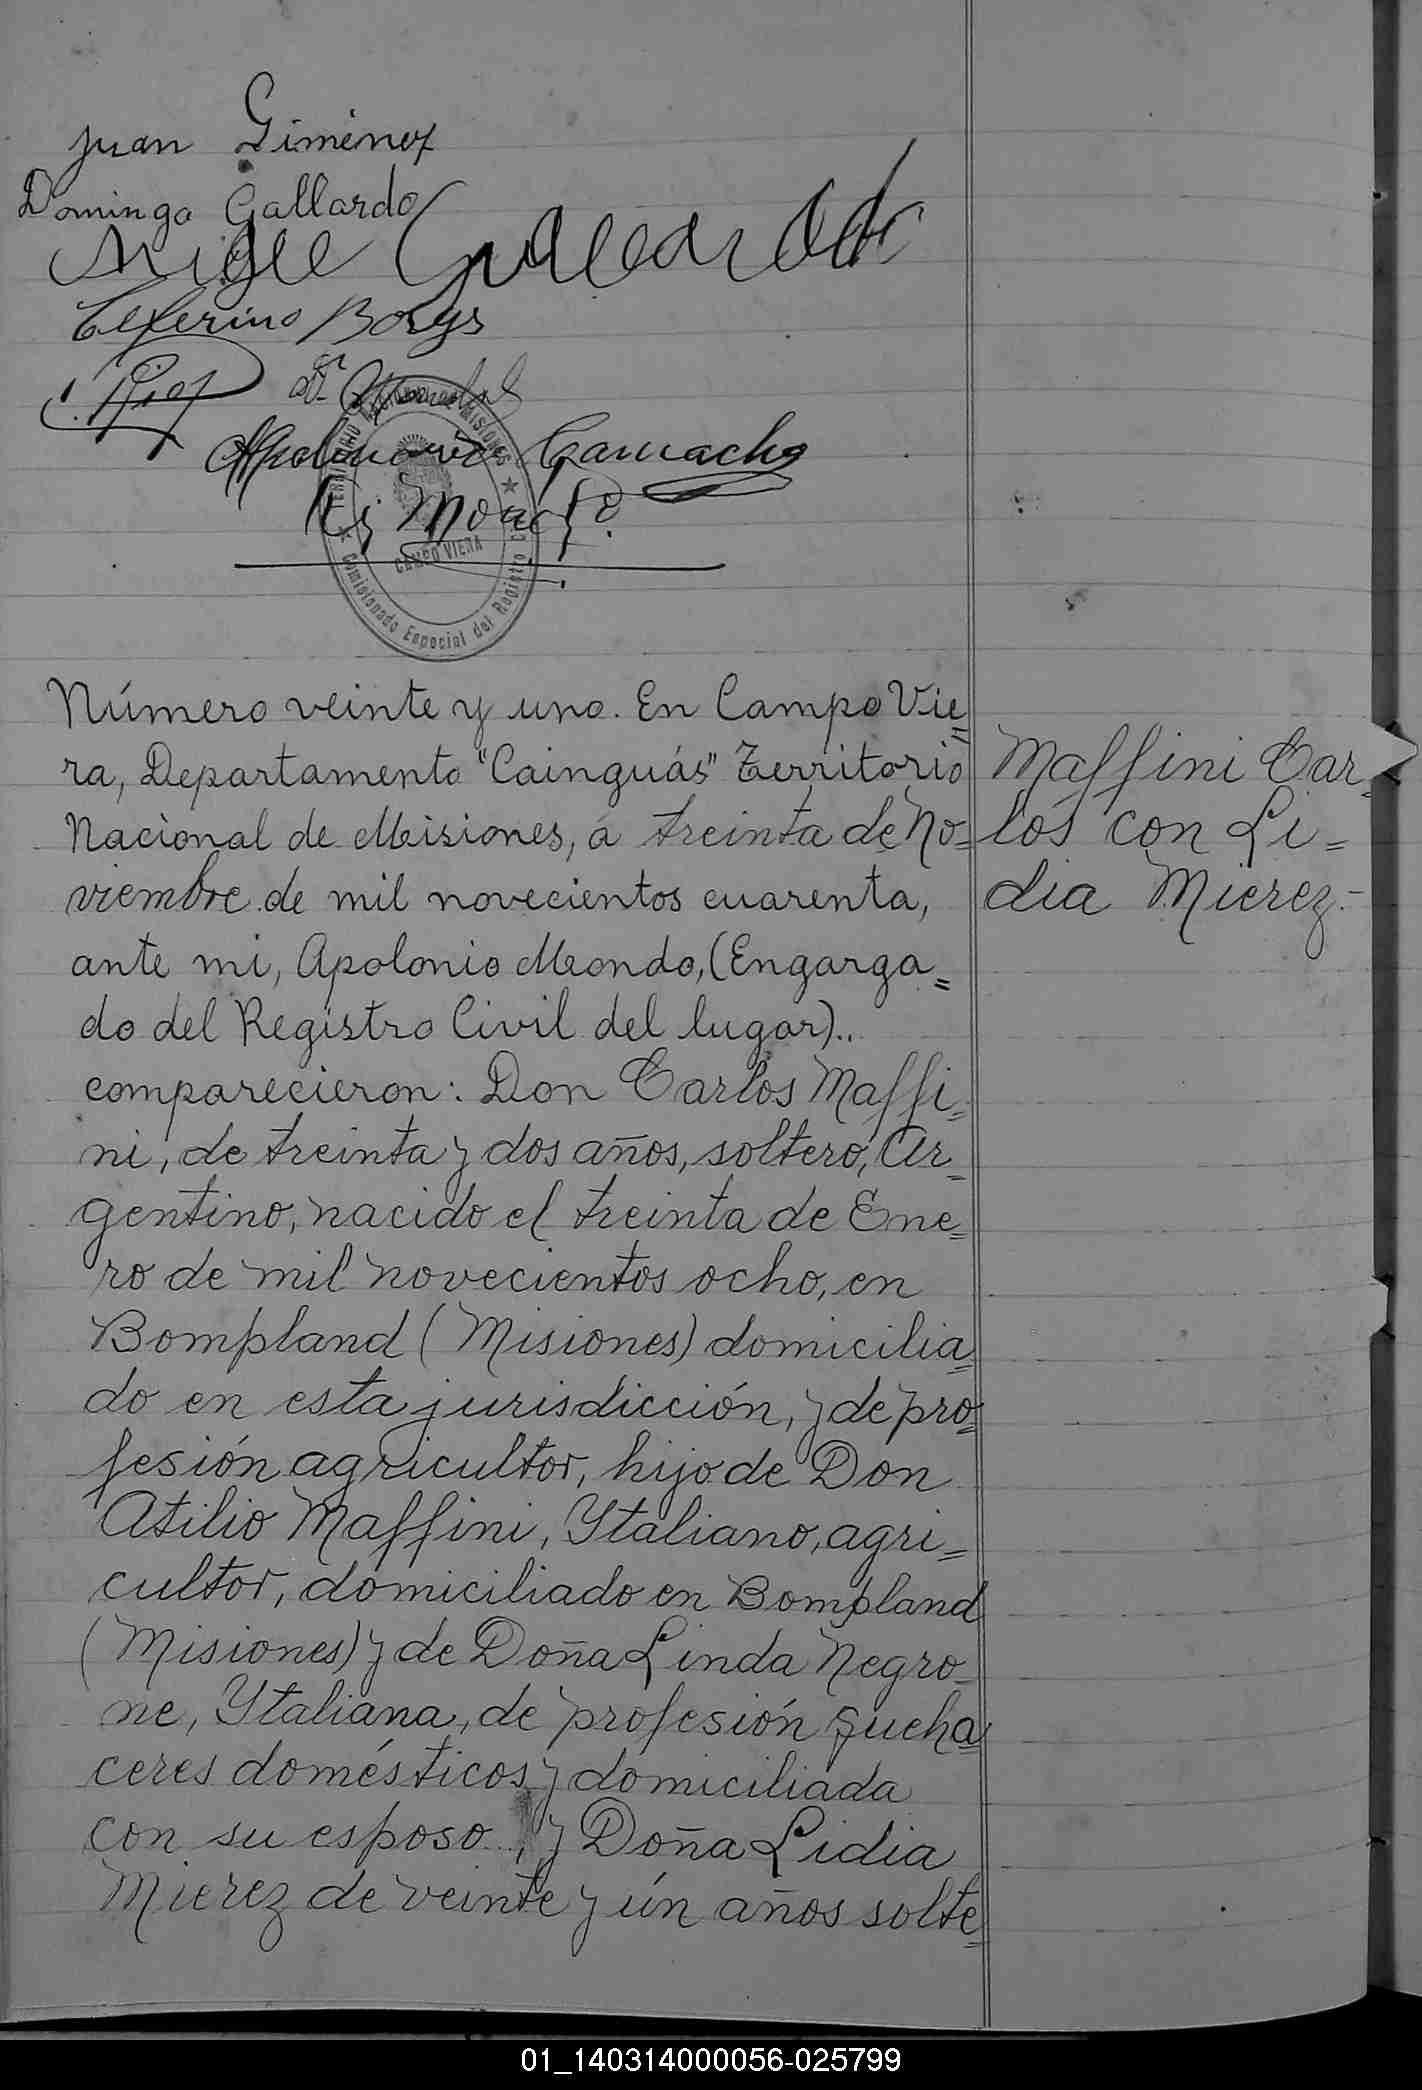 Juan Giménez
Domingo Gallardo
Gallardo
Ceferino Borys
Apolinario Camacho
TERRITORIO NACIONAL DE MISIONES
CAMPO VIERA
Comisionado Especial del Registro
Número veinte y uno. En Campo Vie=
ra, Departamento "Cainguás" Territorio
Nacional de Misiones, á treinta de No=
viembre de mil novecientos cuarenta,
ante mi, Apolonio Mondo, (Engarga=
do del Registro Civil del lugar)..
comparecieron: Don Carlos Maffi=
ni, de treinta y dos años, soltero, Ar=
gentino, nacido el treinta de Ene=
ro de mil novecientos ocho, en
Bompland (Misiones) domicilia=
do en esta jurisdicción, y de pro=
fesión agricultor, hijo de Don
Atilio Maffini, Ytaliano, agri=
cultor, domiciliado en Bompland
(Misiones) y de Doña Linda Negro=
ne, Ytaliana, de profesión queha=
ceres domésticos y domiciliada
con su esposo, y Doña Lidia
Mierez de veinte y ún años solte=
Maffini Car=
los con Li=
dia Mierez.-
01_140314000056-025799